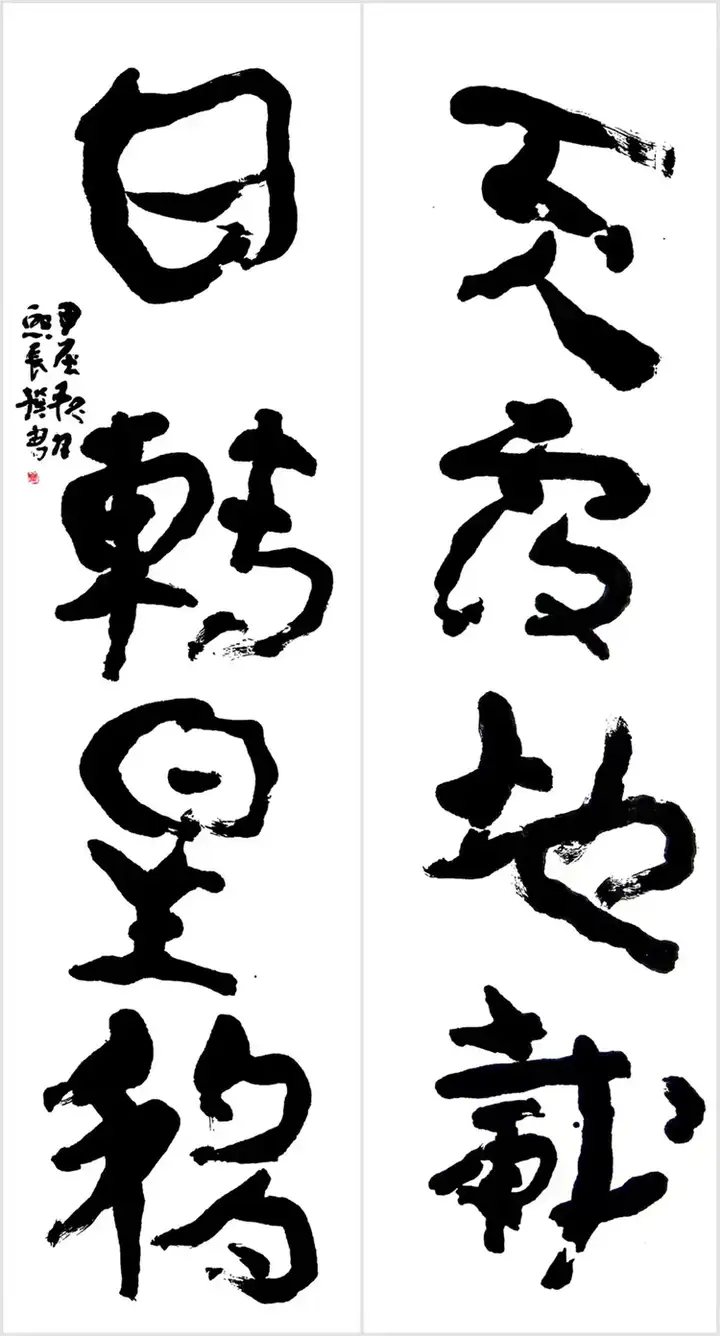 天覆地載
日轉星移
甲辰秋月
長撰書